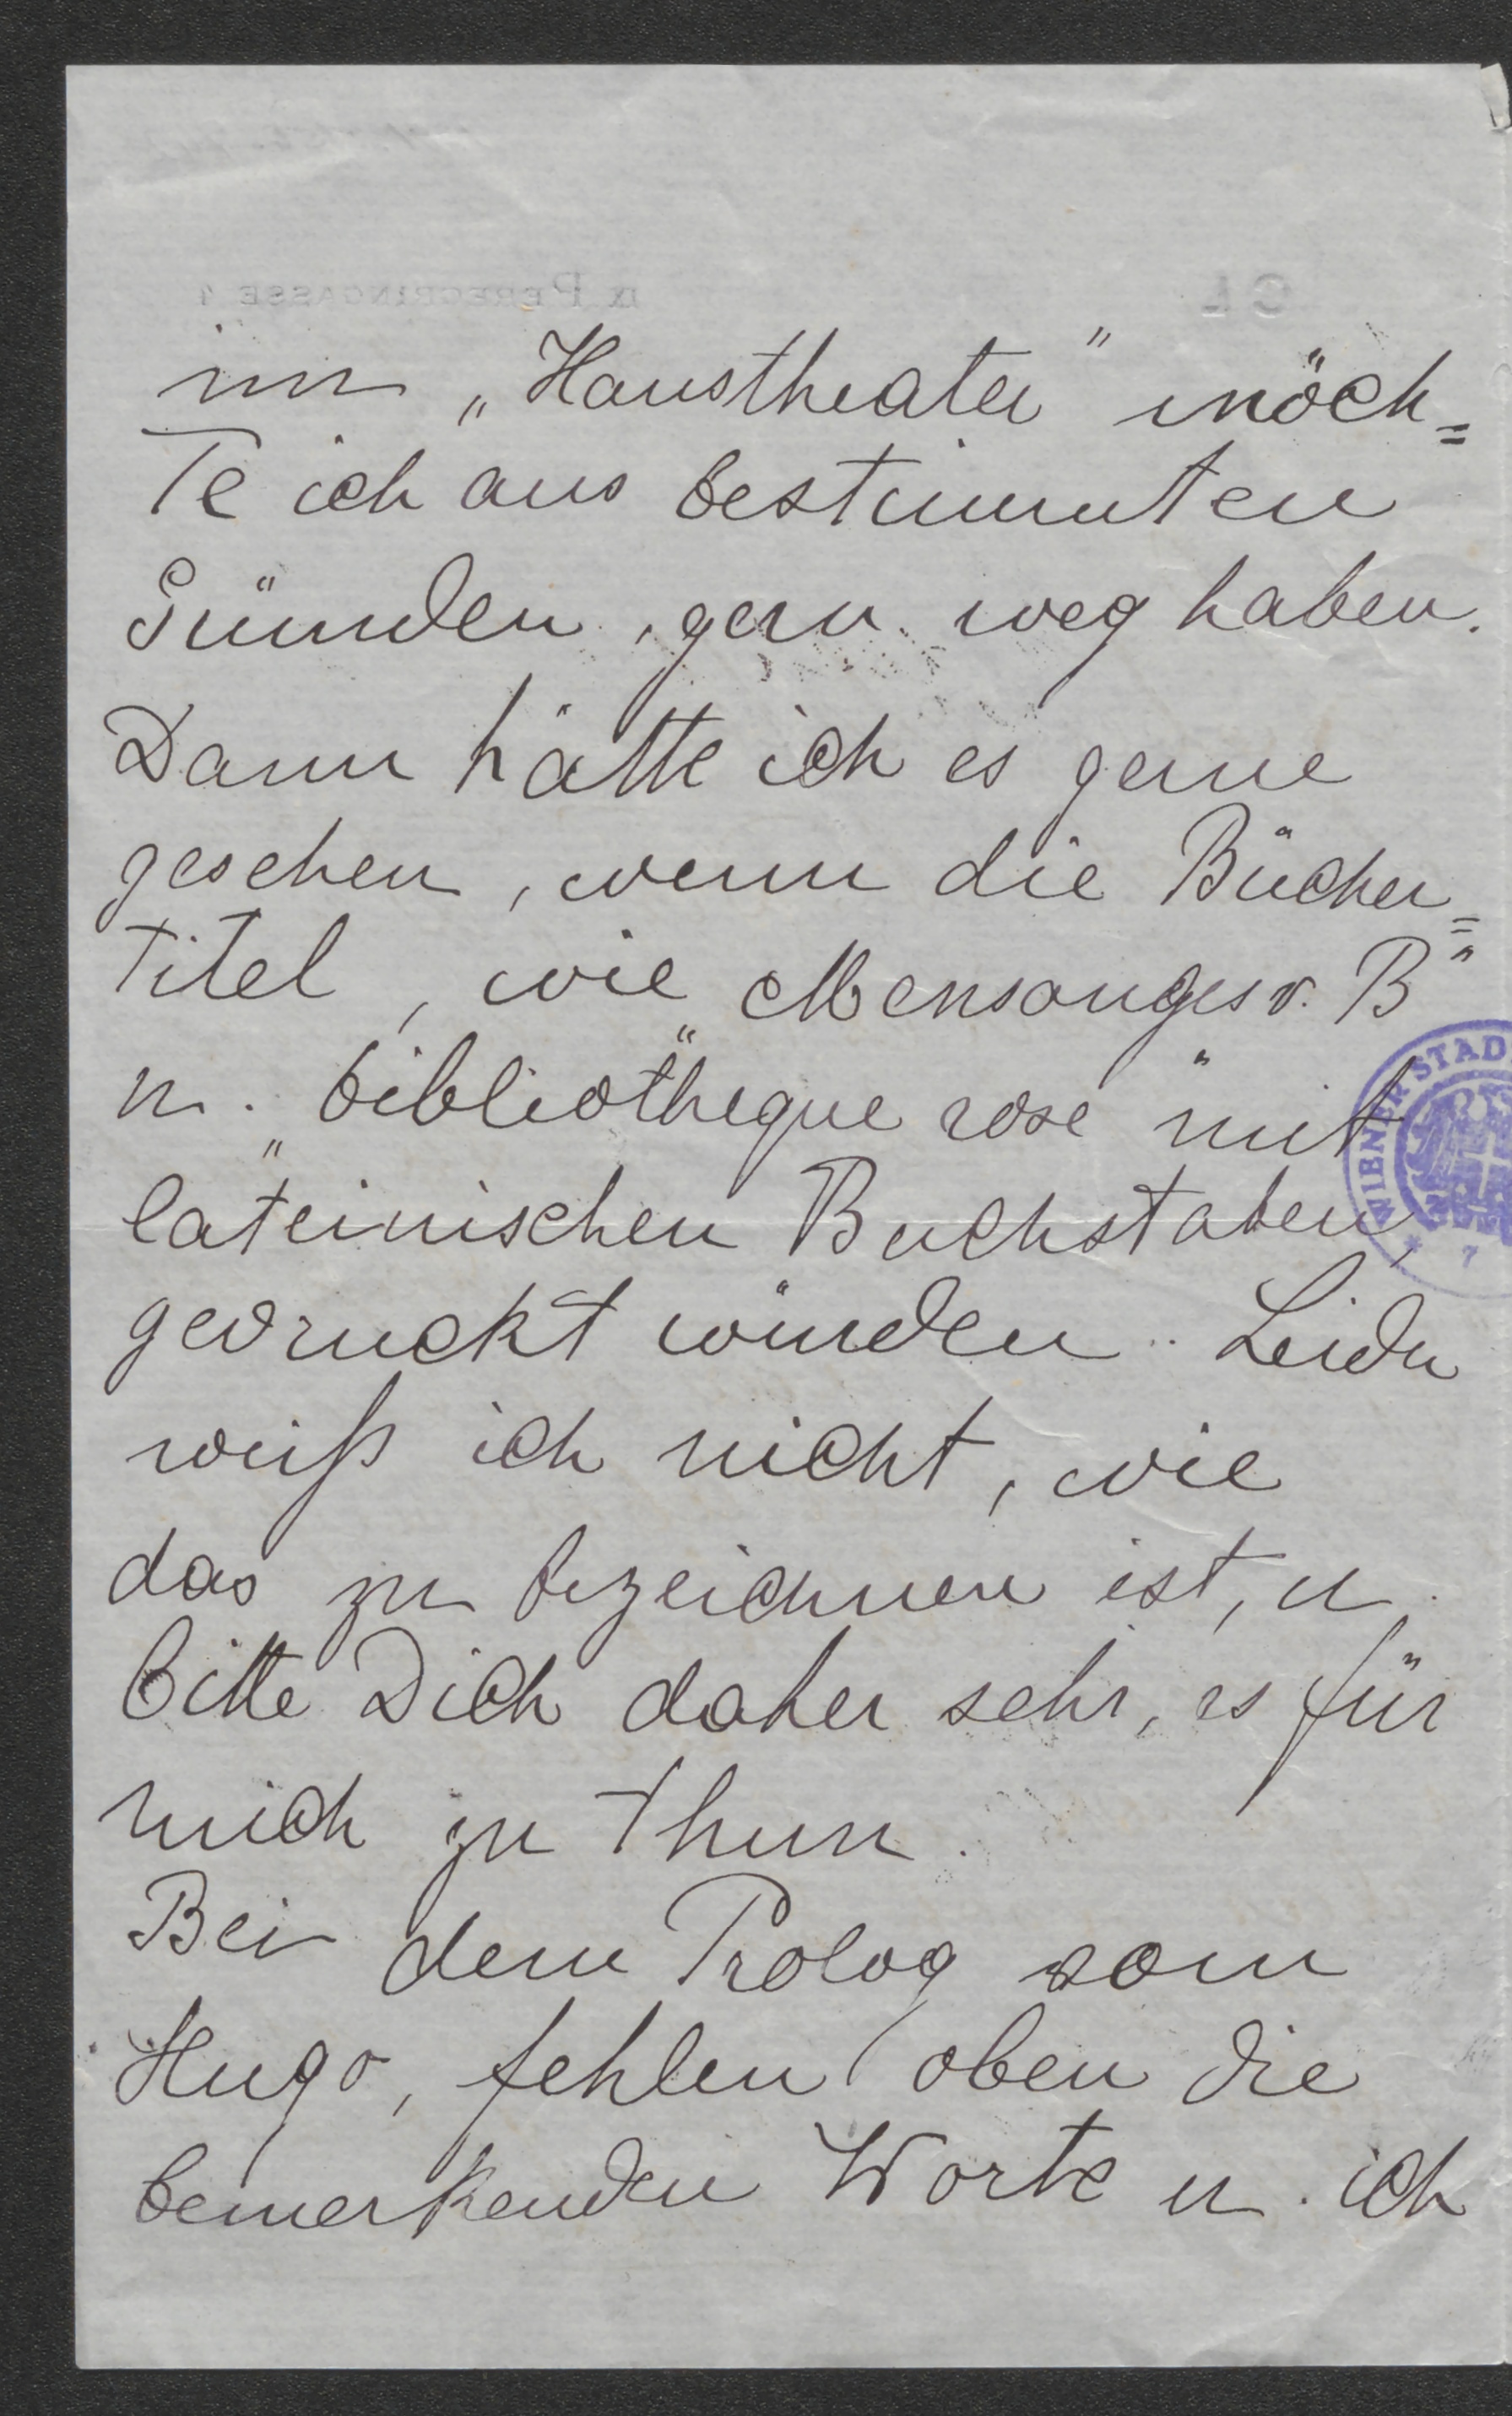 IX PEREGRINGASSE 1
CL
im „Haustheater" möch=
te ich aus bestimmten
Gründen, gern weg haben.
Dann hätte ich es gerne
gesehen, wenn die Bücher=
titel, wie „Mensonges v. B"
u. „bibliothegue rose" mit
lateinischen Buchstaben
gedruckt würden. Leider
weiß ich nicht, wie
das zu bezeichnen ist, u.
bitte Dich daher sehr, es für
mich zu thun.
Bei dem Prolog vom
Hugo, fehlen oben die
bemerkenden Worte u. ich
WIENER STAD
7